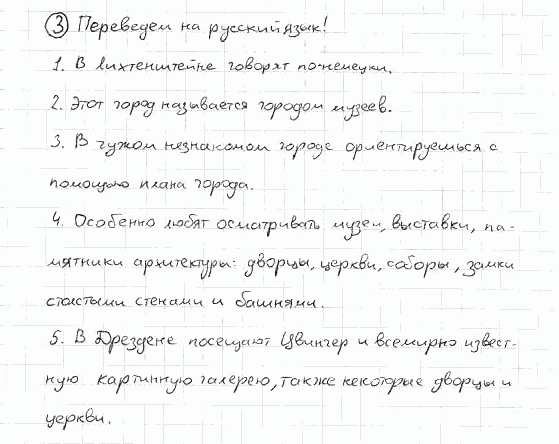 ③ Переведем на русский язык!
1. В Лихтенштейне говорят по-немецки.
2. Этот город называется городом музеев.
3. В чужом незнакомом городе ориентируешься с
помощью плана города.
4. Особенно любят осматривать музеи, выставки, па-
мятники архитектуры: дворцы, церкви, соборы, замки
с толстыми стенами и башнями.
5. В Дрездене посещают Цвингер и всемирно извест-
ную картинную галерею, также некоторые дворцы и
церкви.